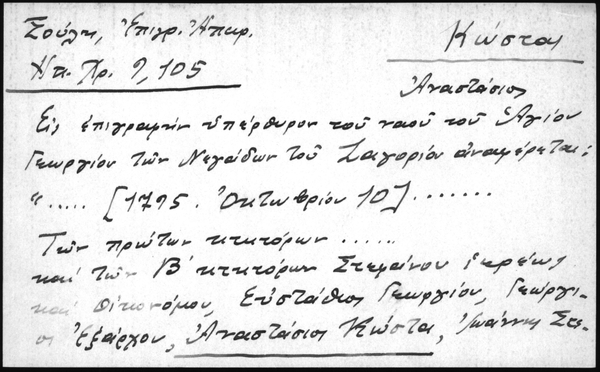 Σούλη, Ἐπιγρ. Ἀπαρ.
Ηπ. Χρ. 9, 105
Κώστα
Ἀναστάσιος
Εἰς ἐπιγραφὴν ὑπέρθυρον τοῦ ναοῦ τοῦ Ἁγίου
Γεωργίου τῶν Νεγάδων τοῦ Ζαγορίου ἀναφέρεται:
“..... [1795. Ὀκτωβρίου 10].......
Τῶν πρώτων κτητόρων ......
καὶ τῶν Β΄ κτητόρων Στεφάνου ἱερέως
καὶ Οἰκονόμου, Εὐστάθιος Γεωργίου, Γεώργι-
ος Ἐξάρχου, Ἀναστάσιος Κώστα, Ἰωάννης Στε-